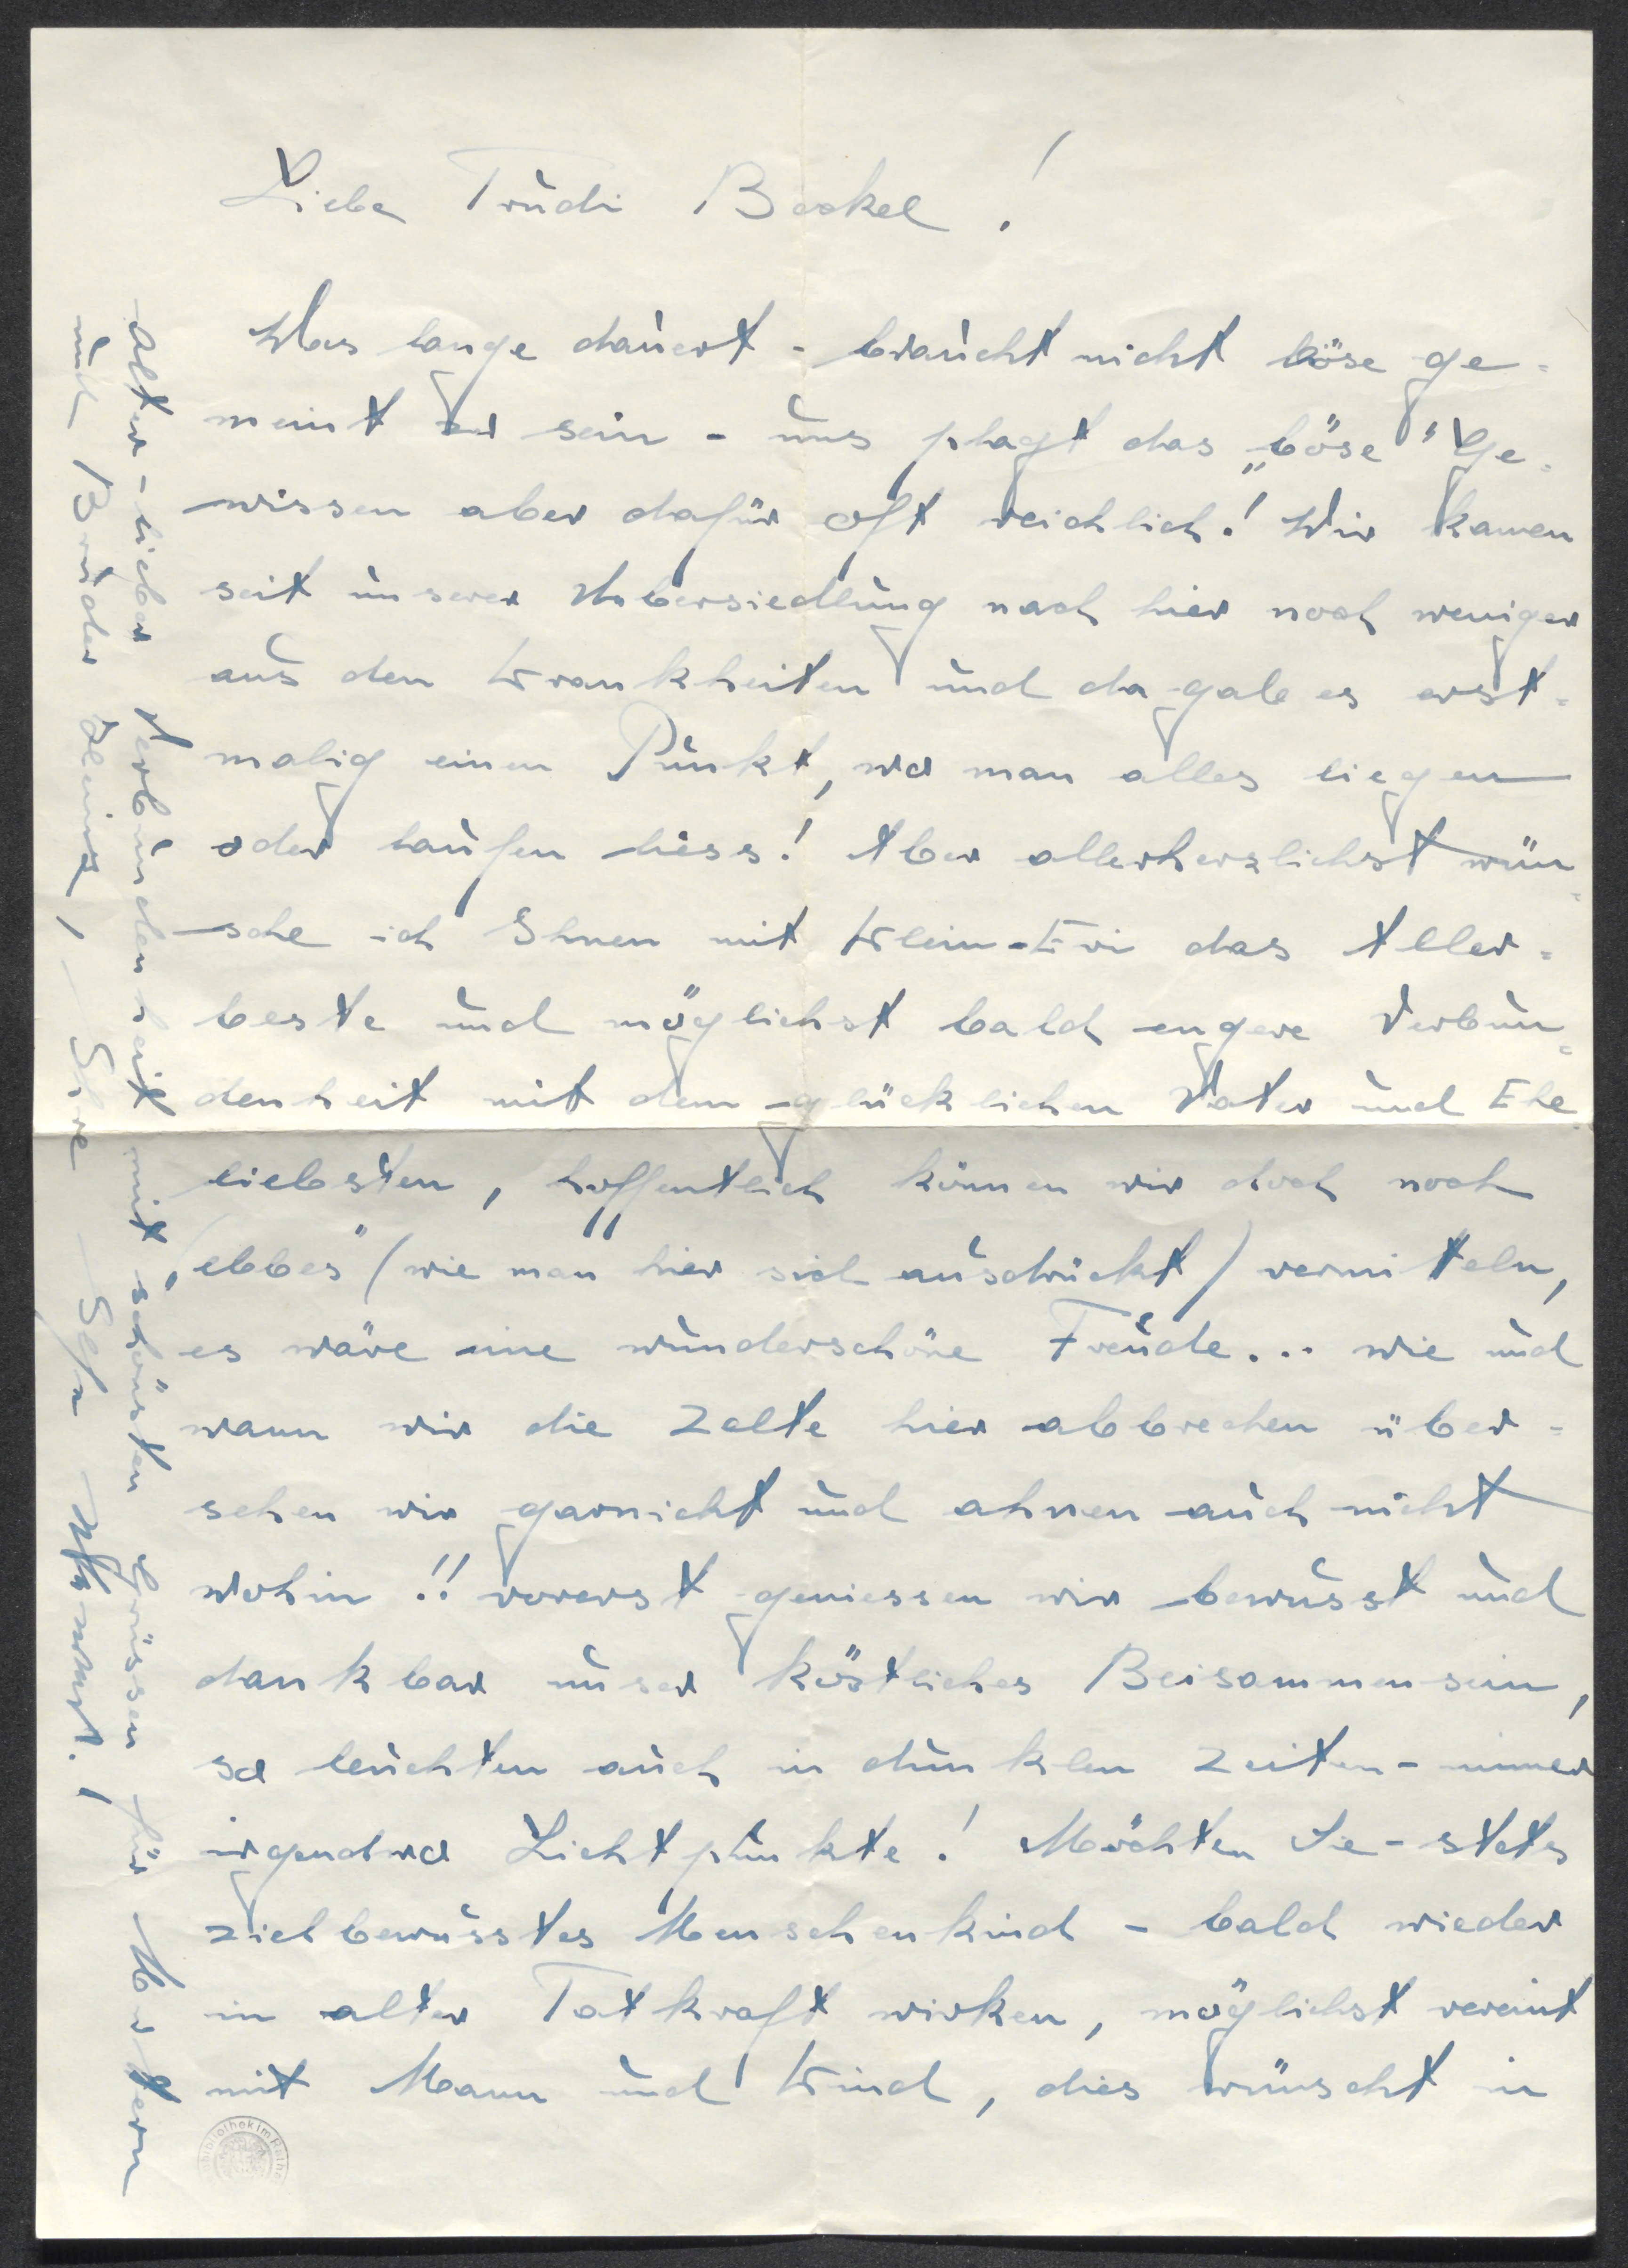 Liebe Trudi Backel!
Was lange dauert - braucht nicht böse ge=
meint zu sein - uns plagt das „böse" Ge=
wissen aber dafür oft reichlich! Wir kamen
seit unserer Übersiedlung nach hier noch weniger
aus den Krankheiten und da gab es erst=
malig einen Punkt, wo man alles liegen
oder laufen liess! Aber allerherzlichst wün=
sche ich Ihnen mit Klein-Evi das Aller=
beste und möglichst bald engere Verbun=
denheit mit dem glücklichen Vater und Ehe
liebsten, hoffentlich können wir doch noch
„ebbes" (wie man hier sich ausdrückt) vermitteln,
es wäre eine wunderschöne Freude... wie und
wann wir die Zelte hier abbrechen über=
sehen wir garnicht und ahnen auch nicht
wohin!! vorerst geniessen wir bewusst und
dankbar unser köstliches Beisammensein,
so leuchten auch in dunklen Zeiten - immer
irgendwo Lichtpunkte! Möchten Sie - stets
zielbewusstes Menschenkind - bald wieder
in alter Tatkraft wirken, möglichst vereint
mit Mann und Kind, dies wünscht in
alter - lieber Verbundenheit mit schönsten Grüssen für Muttern
und Bruder Heinz, Ihre